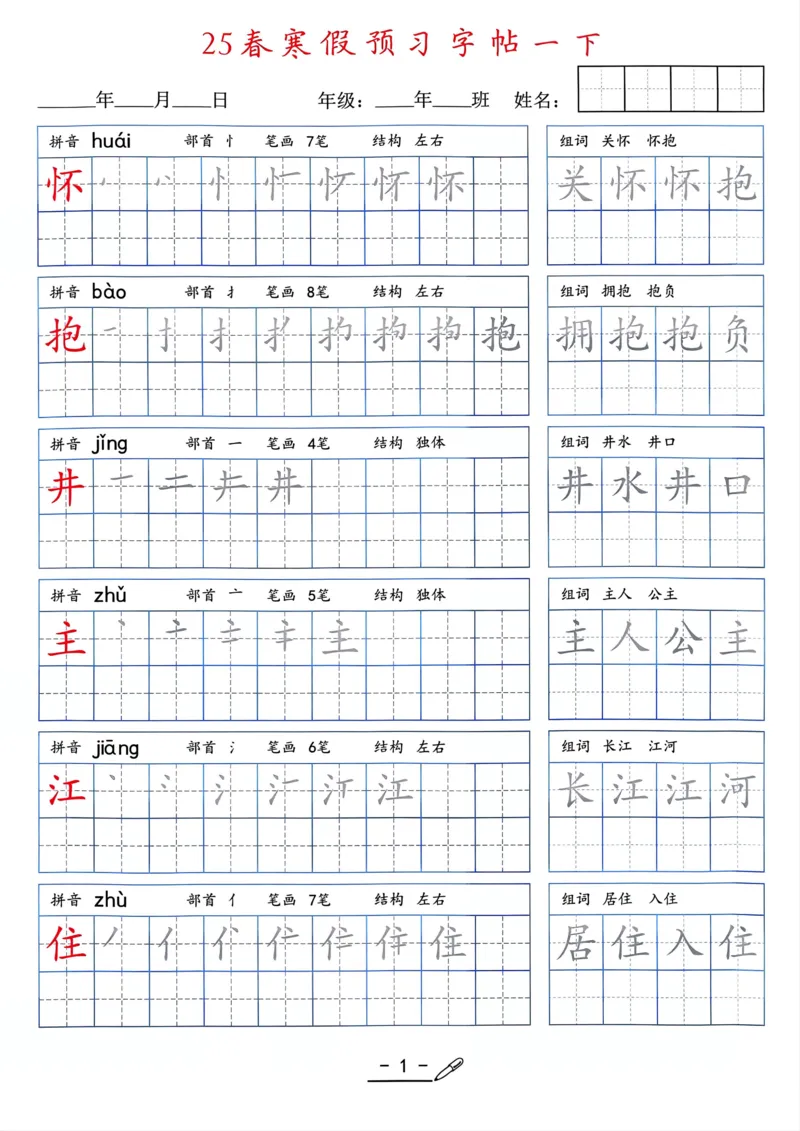 25春寒假预习字帖一下
______年____月____日 年级：____年____班 姓名：
拼音 huái 部首 忄 笔画 7笔 结构 左右 组词 关怀 怀抱
怀 怀 怀 关 怀 怀 抱
拼音 bào 部首 扌 笔画 8笔 结构 左右 组词 拥抱 抱负
抱 抱 拥 抱 抱 负
拼音 jǐng 部首 一 笔画 4笔 结构 独体 组词 井水 井口
井 一 二 井 井 水 井 口
拼音 zhǔ 部首 亠 笔画 5笔 结构 独体 组词 主人 公主
主 丶 亠 主 主 人 公 主
拼音 jiāng 部首 氵 笔画 6笔 结构 左右 组词 长江 江河
江 丶 氵 江 长 江 江 河
拼音 zhù 部首 亻 笔画 7笔 结构 左右 组词 居住 入住
住 丿 亻 住 居 住 入 住
- 1 -